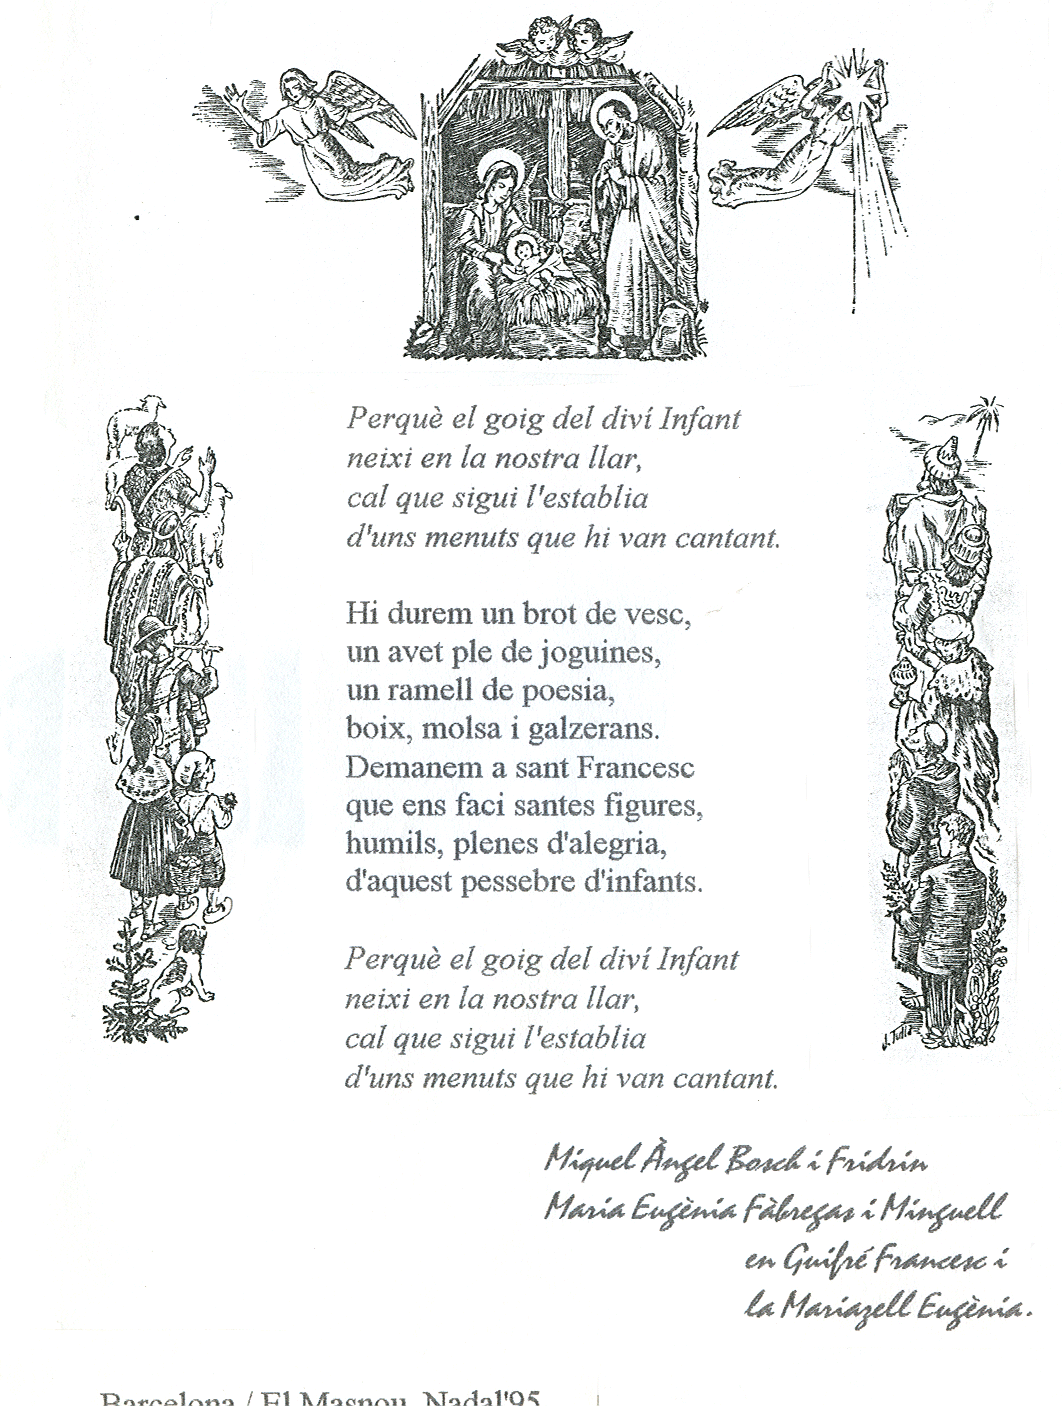 Perquè el goig del diví Infant
neixi en la nostra llar,
cal que sigui l'establia
d'uns menuts que hi van cantant.
Hi durem un brot de vesc,
un avet ple de joguines,
un ramell de poesia,
boix, molsa i galzerans.
Demanem a sant Francesc
que ens faci santes figures,
humils, plenes d'alegria,
d'aquest pessebre d'infants.
Perquè el goig del diví Infant
neixi en la nostra llar,
cal que sigui l'establia
d'uns menuts que hi van cantant.
Miquel Àngel Bosch i Fridrin
Maria Eugènia Fàbregas i Minguell
en Guifré Francesc i
la Mariazell Eugènia.
Barcelona / El Masnou, Nadal'95